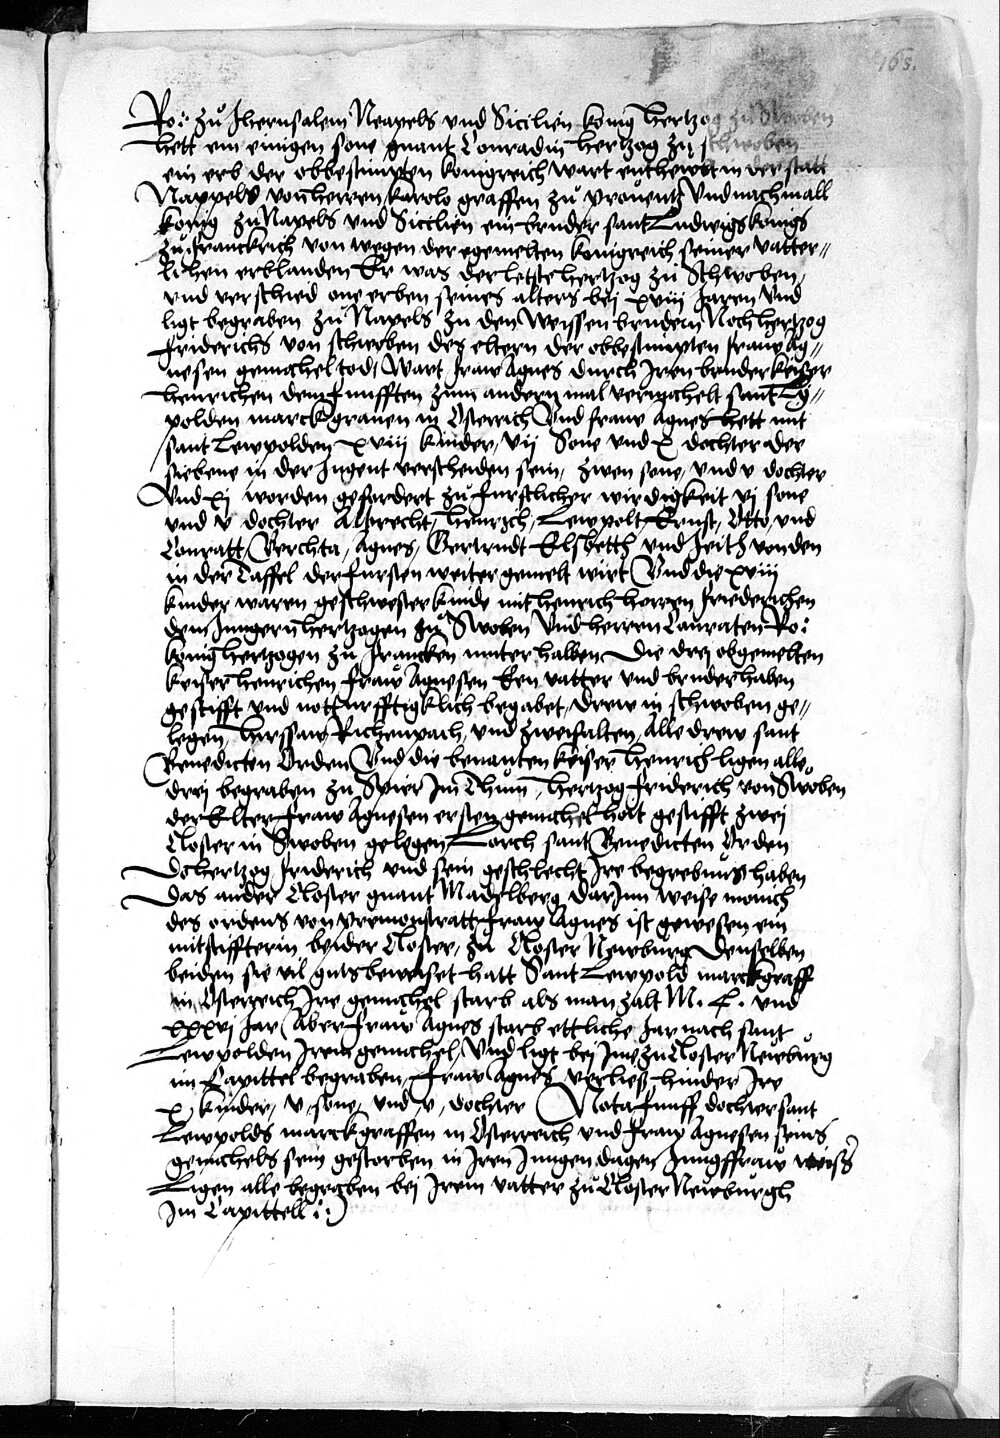 163.
Ro: zů Jherusalem Neapels vnd Sicilien konig hertzog zů Swoben
hett ein einigen sone gnant Conradin hertzog zů schwoben
ein erb der obbestimpten konigreich wart entheubt in der statt
Nappels von herren Karolo graffen zů prouentz Vnd nachmall
konig zů Napels vnd Sicilien ein bruder sant Ludwigs konigs
zů franckrich von wegen der egemelten konigreich seiner vatter//
lichen erblanden Er was der letste hertzog zů Schwoben,
vnd verschied one erben seines alters bej xviij Jaren Vnd
ligt begraben zů Napels zu den Weissen brudern Noch hertzog
friderichs von schwoben des eltern der obbestimpten frauw Ag//
nesen gemachel tod, Wart fraw Agnes durch Iren bruder keiser
henrichen dem funfften zum andern mal vermachelt sant Lů//
polden marckgrauen in Osterrich Vnd fraw Agnes hett mit
sant Lewpolden xviij kinder, vij Sone vnd x dochter der
siebene in der Jugent verscheiden sein, zwen sone, vnd v dochter
Vnd xj worden gefordert zů furstlicher wirdigkeit vj sone
vnd v dochter Albrecht, Henrich, Lewpolt Ernst, Otto, vnd
Conratt, Berchta, Agnes, Gertrudt Elsbetth vnd Jeith von den
in der Taffel der fursten weiter gemelt wirt Vnd die xviij
kinder waren geschwester kinde mit henrich herren friederichen
dem Jungern hertzogen zů Swoben Vnd herren Conraten Ro:
konig hertzogen zu francken muter halben Die drej obgemelten
keiser henrichen fraw Agnesen Een vatter vnd bruder haben
gestifft vnd notturfftigklich begabet, drew in schwoben ge//
legen, hirssaw Richenpach, vnd zweifalten, Alle drew sant
Benedicten Orden Vnd die benanten keiser henrich ligen alle
drej begraben zů Speir Im Thum, hertzog friderich von Swoben
der Elter fraw Agnesen ersten gemachel hatt gestifft zwej
Closter in Swoben gelegen Lorch sant Benedicten Orden
Do hertzog friderich vnd sein geschlecht Ire begrebnus haben
Das ander Closter gnant Madelberg dar Jnn weise monich
des ordens von premonstratt, fraw Agnes ist gewesen ein
mitstiffterin beider Closter, zů Closter Newburg Denselben
beiden sie vil guts beweiset hatt Sant Lewpold marckgraff
in Osterreich Ire gemachel starb als man zalt M. C. vnd
xxxvj Jar Aber fraw Agnes starb ettliche Jar nach sant
Lewpolden Irem gemachel, Vnd ligt bej Ime zů Closter Newburg
im Capittel begraben, fraw Agnes verließ hinder Ire
x, kinder, v, sone, vnd, v, dochter Nota funff dochter sant
Lewpolds marckgraffen in Osterreich vnd fraw Agnesen seins
gemachels sein gestorben in Iren Jungen dagen Jungffraw weiß
Ligen alle begraben bej Irem vatter zů Closter Newburgh
Im Capittell :.